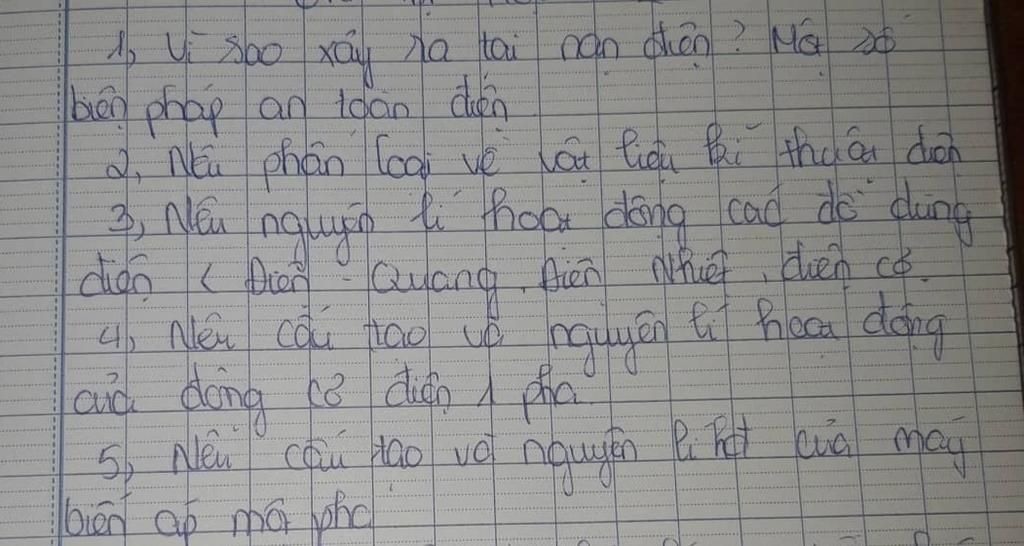 1, Vì sao xảy ra tai nạn điện? Một số
biện pháp an toàn điện
2, Nêu phân loại về vật liệu kĩ thuật điện
3, Nêu nguyên lí hoạt động các đồ dùng
điện < Điện - Quang, Điện Nhiệt, điện cơ
4, Nêu cấu tạo và nguyên lí hoạt động
của động cơ điện 1 pha
5, Nêu cấu tạo và nguyên lí hđ của máy
biến áp một pha